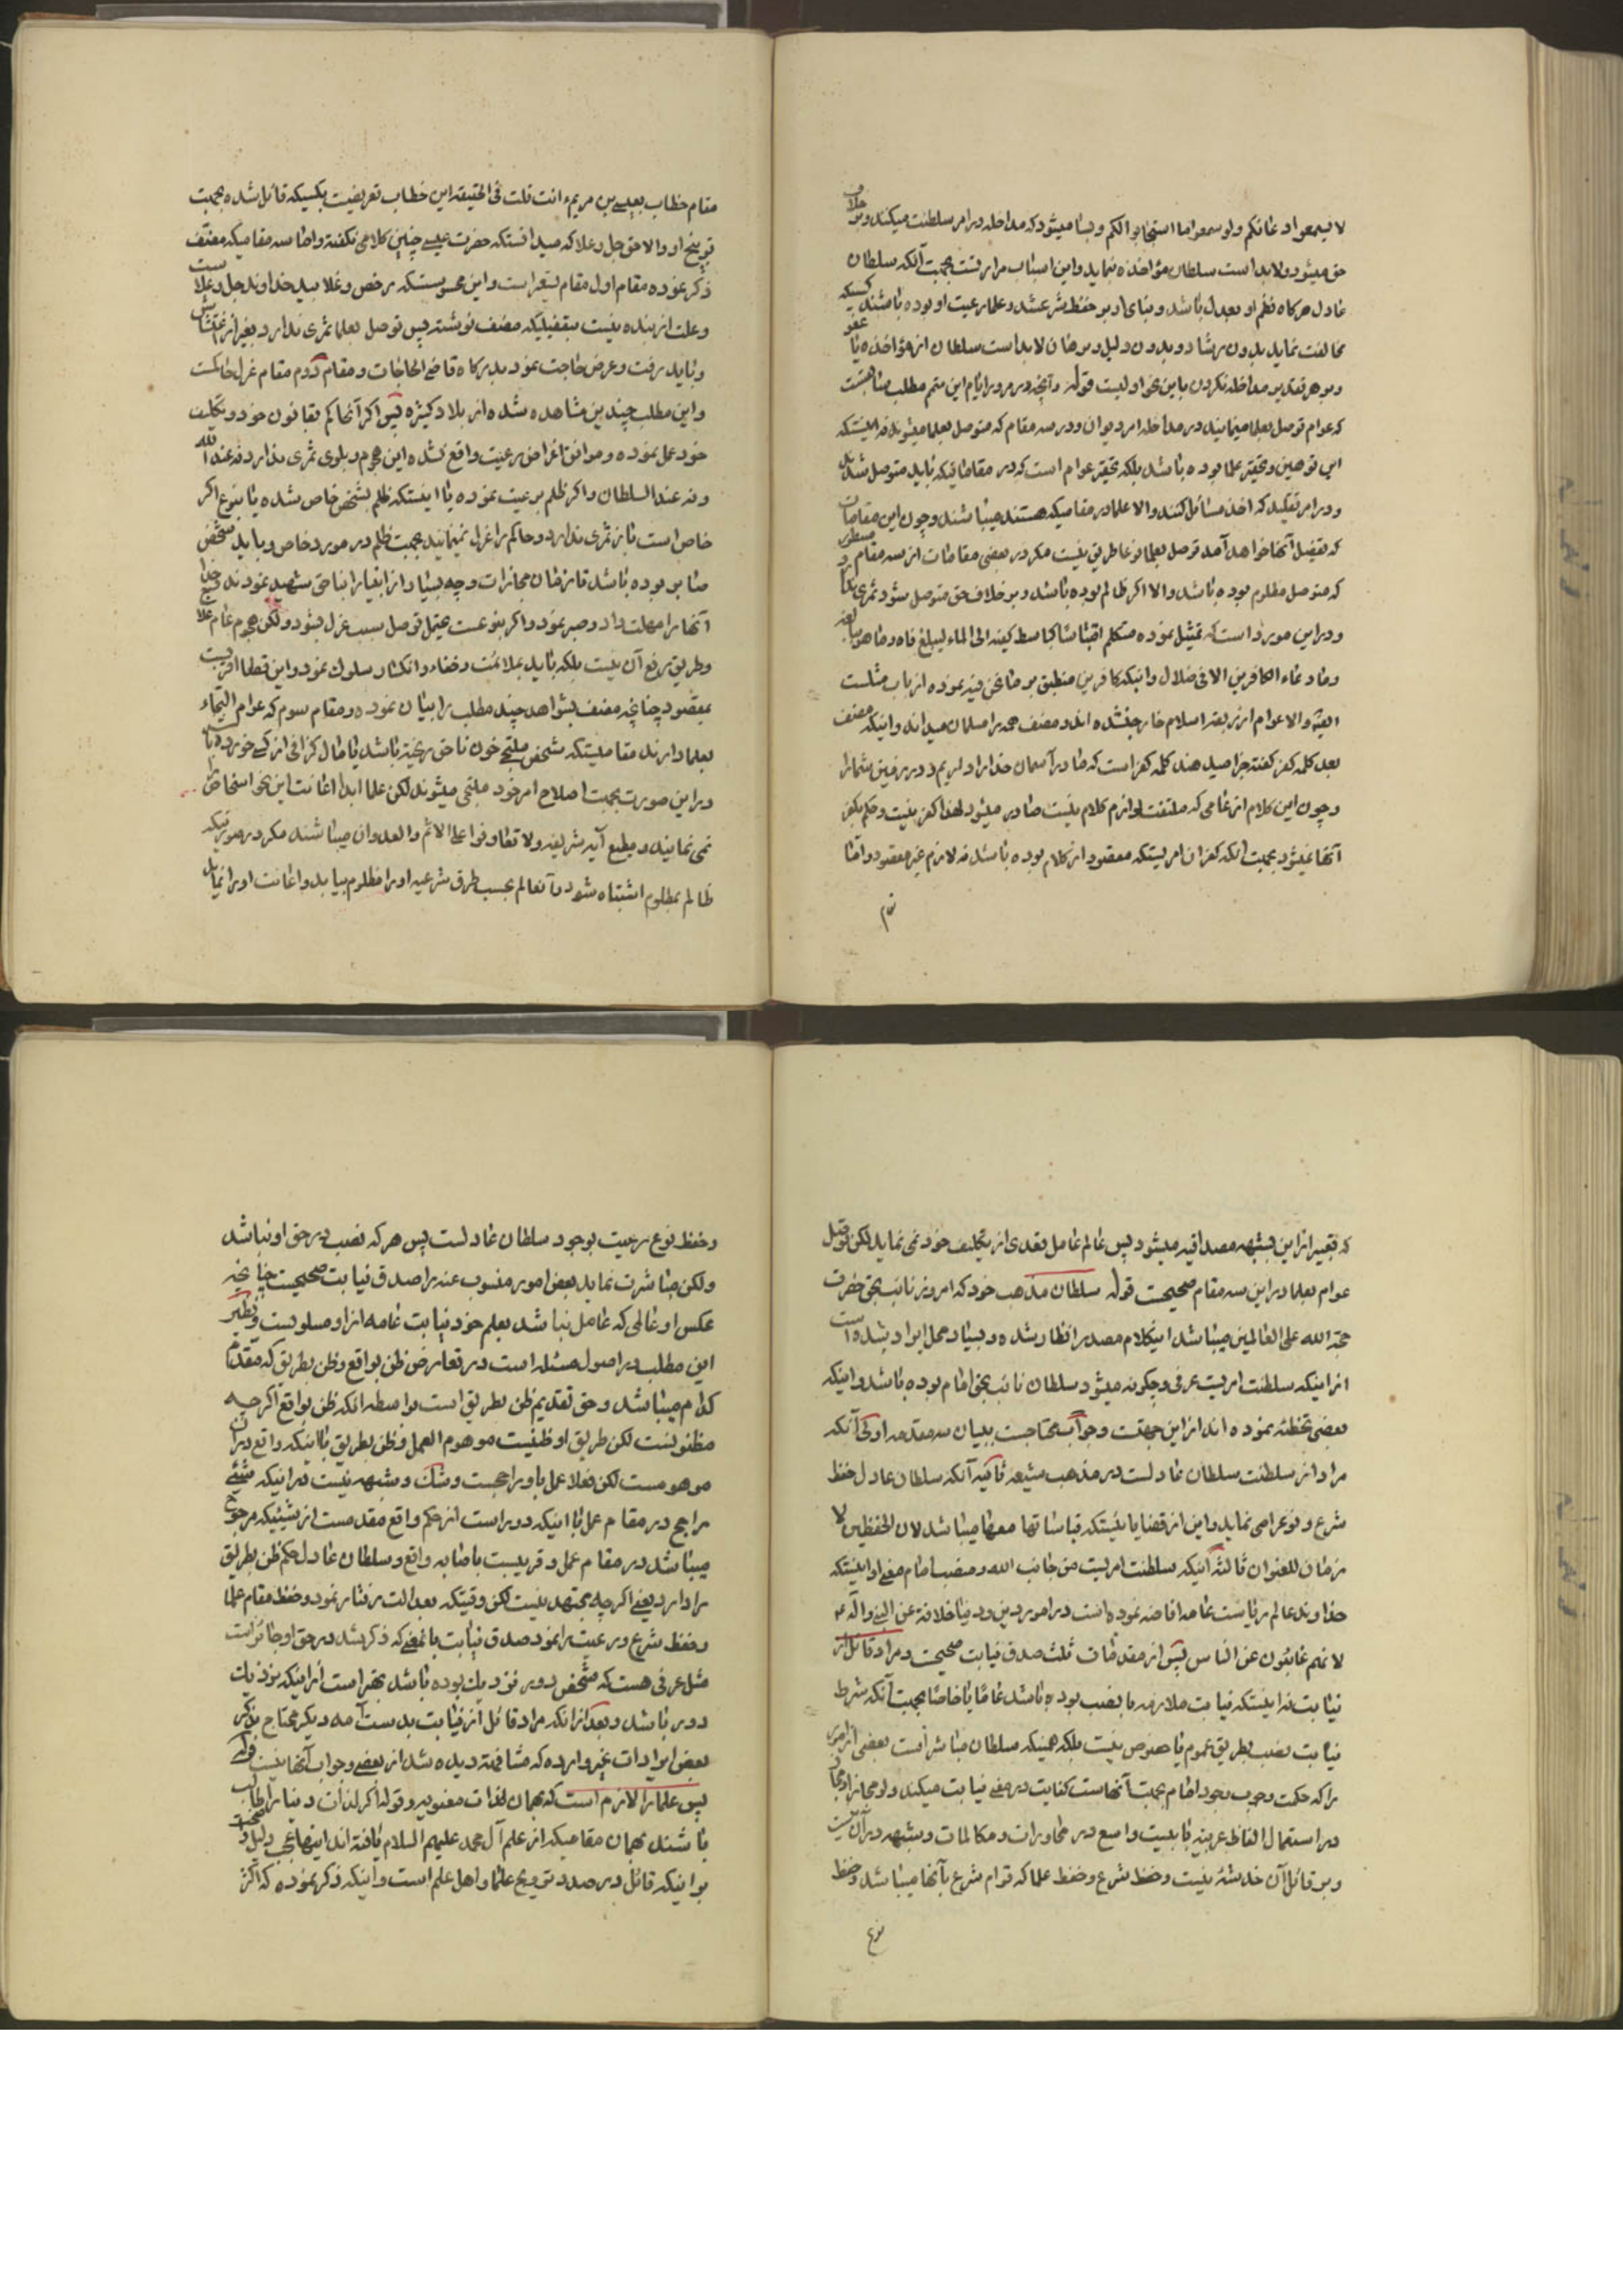 لا یسمعوا دعائکم ولو سمعوا ما استجابوا لکم و بسا میشود که مداخله در امر سلطنت میکنند و بر خلاف
حق میشود و لابد است سلطان مؤاخذه نماید و این اسباب مرارتست بجهت آنکه سلطان
عادل هرگاه نظم او بعدل باشد و بنای او بر حفظ شرع شد و علما رعیت او بوده باشند کسیکه
مخالفت نماید بدون رشاد و بدون دلیل و برهان لابد است سلطان از مؤاخذه یا عفو
و بر هر تقدیر مداخله نکردن باین نحو اولیست قوله و آنچه در مرور ایام این متمم مطلب سابقست
که عوام توصل بعلما مینمایند در مداخله امر دیوان و در سه مقام که متوصل بعلما میشوند نه اینستکه
این توهین و تحقیر علما بوده باشد بلکه تحقیر عوام است که در مقاماتیکه باید متوصل شد
و در امر تقلید که اخذ مسائل کنند والا علما در مقامیکه هستند میباشند و چون این مقامات
که تفصیل آنها خواهد آمد توصل بعلما نوعا طریق نیست مگر در بعضی مقامات از سه مقام مسطور
که متوصل مظلوم بوده باشد والا اگر ظالم بوده باشد و بر خلاف حق متوصل شود ثمری ندارد
و در این مورد است که تمثیل نموده متکلم اقتباسا کباسط کفیه الی الماء لیبلغ فاه و ما هو ببالغه
و ما دعاء الکافرین الا فی ضلال و اینکه کافرین منطبق بر ما نحن فیه نموده از باب مثلست
البته والا عوام از ربقه اسلام خارج نشده اند و مصنف همه را مسلمان میداند و اینکه مصنف
بعد کلمه کفر گفته جزا میدهند کلمه کفر است که ما در آسمان خدا را داریم و در زمین شما را
و چون این کلام از عامی که ملتفت لوازم کلام نیست صادر میشود لهذا کفر نیست و حکم بکفر
آنها نمیشود بجهت آنکه کفر آن امریستکه مقصود از کلام بوده باشد نه لازم غیر مقصود و اما
مقام خطاب بعیسی بن مریم ءانت قلت فی الحقیقه این خطاب تعریضیست بکسیکه قائل شده بجهت
توبیخ او والا حق جل و علا که میدانستکه حضرت عیسی چنین کلامی نگفته و اما سه مقامیکه مصنف
ذکر نموده مقام اول مقام تسعیر است و این محسوسستکه رخص و غلا بید خداوند جل و علا است
و علت از بنده نیست بتفصیلیکه مصنف نوشته پس توصل بعلما ثمری ندارد بغیر از اغتشاش
و باید رفت و عرض حاجت نمود بدرگاه قاضی الحاجات و مقام دوم مقام عزل حاکمست
و این مطلب چندین مشاهده شده از بلاد کثیره پس اگر آنحاکم بقانون خود و تکلیف
خود عمل نموده و موافق اغراض رعیت واقع نشده این هجوم و بلوی ثمری ندارد نه عند الله
و نه عند السلطان و اگر ظلم برعیت نموده یا اینستکه ظلم بشخص خاص شده یا بنوع اگر
خاص است باز ثمری ندارد و حاکم را عزل نمینمایند بجهت ظلم در مورد خاص و باید شخص
صابر بوده باشد تا زمان مجازات و چه بسیار از انبیا را بناحق شهید نمودند خدا
آنها را مهلت داد و صبر نمود و اگر بنوعست عیتمل توصل سبب عزل بشود ولکن هجوم عام علاج
و طریق رفع آن نیست بلکه باید بملائمت و خفاء و انکسار سلوک نمود و این قطعا اقربست
بمقصود چنانچه مصنف بشواهد چند مطلب را بیان نمود و مقام سوم که عوام التجاء
بعلما دارند مقامیستکه شخص ملتجی خون ناحق ریخته باشد یا مال گزافی از کسی خورده باشد
در این صورت بجهت اصلاح امر خود ملتجی میشوند لکن علما ابدا اعانت این نحو اشخاص را
نمی نمایند و مطیع آیه شریفه ولا تعاونوا علی الاثم والعدوان میباشند مگر در صورتیکه
ظالم بمظلوم اشتباه شود و آنعالم بحسب طرق شرعیه او را مظلوم بیابد و اعانت او را نماید
که تعبیر از این بشبهه مصداقیه میشود پس عالم عامل تعدی از تکلیف خود نمی نماید لکن توصل
عوام بعلما در این سه مقام صحیحست قوله سلطان مذهب خود که امروز نائب بحق حضرت
حجة الله علی العالمین میباشد اینکلام مصدر انظار شده و بسیار محل ایراد شده است
از اینکه سلطنت امریست عرفی و چگونه میشود سلطان نائب بحق امام بوده باشد و اینکه
بعضی تخطئه نموده اند از این جهتست و جواب محتاجست ببیان سه مقدمه اولی آنکه
مراد از سلطنت سلطان عادلست در مذهب شیعه ثانیه آنکه سلطان عادل حفظ
شرع و نوع را می نماید و این از قضایا نیستکه قیاساتها معها میباشد لان الحفظین لا
زمان للعنوان ثالثه آنیکه سلطنت امریست من جانب الله و منصب امام معنی او اینستکه
خداوند عالم ریاست عامه افاضه نموده است در امور دین و دنیا خلافة عن النبی و آله
لانهم غائبون عن الناس پس از مقدمات ثلث صدق نیابت صحیحست و مراد قائل از
نیابت نه اینستکه نیابت ملازمه با نصب بوده باشد عاما یا خاصا بجهت آنکه شرط
نیابت نصب بطریق عموم یا خصوص نیست بلکه همینکه سلطان مباشر است بعضی از امور
را که حکمت وجوب وجود امام بجهت آنهاست کفایت در معنی نیابت میکند ولو مجازا و مجاز
در استعمال الفاظ عربیه بابیست واسع در محاورات و مکالمات و شبهه در آن نیست
و بر قائل آن خدشه نیست و حفظ شرع و حفظ علما که قوام شرع بآنها میباشد و حفظ
نوع
وحفظ نوع رعیت بوجود سلطان عادلست پس هر که نصب در حق او نباشد
ولکن مباشرت نماید بعض امور منسوب عنه را صدق نیابت صحیحست چنانچه
عکس او عالمی که عامل نباشد بعلم خود نیابت عامه از او مسلوبست و نظیر
این مطلب در اصول مسئله است در تعارض ظن بواقع و ظن بطریق که مقدم
کدام میباشد و حق تقدیم ظن بطریق است بواسطه انکه ظن بواقع اگرچه
مظنونست لکن طریق او ظنیست موهوم العمل و ظن بطریق باانکه واقع در آن
موهومست لکن فعلا عمل باو راجحست و شک و شبهه نیست در انیکه شیئی
راجح در مقام عمل باانیکه دور است از حکم واقع مقدمست از شیئیکه مرجوح
میباشد در مقام عمل و قریبست باصابه واقع و سلطان عادل حکم ظن بطریق
را دارد یعنی اگرچه مجتهد نیست لکن وقتیکه بعدالت رفتار نمود و حفظ مقام علما
و حفظ شرع و رعیت را نمود صدق نیابت بانمعنی که ذکر شد در حق او جائز است
مثل عرفی هست که شخص دور نزدیک بوده باشد بهتر است از اینکه نزدیک
دور باشد و بعد از انکه مراد قائل از نیابت بدست آمد دیگر محتاج بذکر
بعض ایرادات غیر وارده که مشافهة دیده شد از بعضی و جواب آنها نیست قوله
پس علما را لازم است که بهمان لذات معنویه و قوله اگر لذات دنیا را طالب
باشند بهمان مقامیکه از علم آل محمد علیهم السلام یافته اند اینها همه دلیل
بر اینکه قائل در صدد ترویج علما و اهل علم است و اینکه ذکر نموده که اکثر